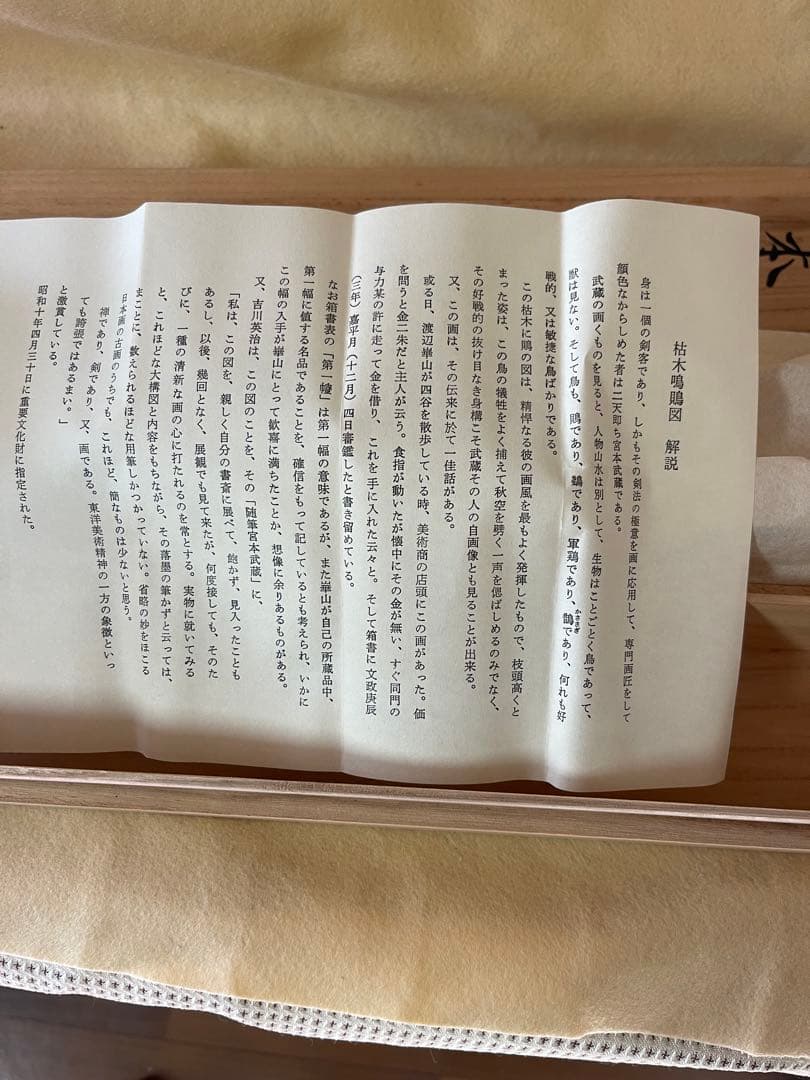 枯木鳴鵙図　解説
身は一個の剣客であり、しかもその剣法の極意を画に応用して、専門画匠をして
顔色なからしめた者は二天即ち宮本武蔵である。
武蔵の画くものを見ると、人物山水は別として、生物はことごとく鳥であって、
獣は見ない。そして鳥も、鵙であり、鷄であり、軍鶏であり、鵲であり、何れも好
戦的、又は敏捷な鳥ばかりである。
この枯木に鵙の図は、精悍なる彼の画風を最もよく発揮したもので、枝頭高くと
まった姿は、この鳥の犠牲をよく捕えて秋空を劈く一声を偲ばしめるのみでなく、
その好戦的の抜け目なき身構こそ武蔵その人の自画像とも見ることが出来る。
又、この画は、その伝来に於て一佳話がある。
或る日、渡辺崋山が四谷を散歩している時、美術商の店頭にこの画があった。価
を問うと金二朱だと主人が云う。食指が動いたが懐中にその金が無い、すぐ同門の
与力某の許に走って金を借り、これを手に入れた云々と。そして箱書に文政庚辰
（三年）嘉平月（十二月）四日審鑑したと書き留めている。
なお箱書表の「第一幢」は第一幅の意味であるが、また崋山が自己の所蔵品中、
第一幅に値する名品であることを、確信をもって記しているとも考えられ、いかに
この幅の入手が崋山にとって歓喜に満ちたことか、想像に余りあるものがある。
又、吉川英治は、この図のことを、その「随筆宮本武蔵」に、
「私は、この図を、親しく自分の書斎に展べて、飽かず、見入ったことも
あるし、以後、幾回となく、展観でも見て来たが、何度接しても、そのた
びに、一種の清新な画の心に打たれるのを常とする。実物に就いてみる
と、これほどな大構図と内容をもちながら、その落墨の筆かずと云っては、
まことに、数えられるほどな用筆しかつかっていない。省略の妙をほこる
日本画の古画のうちでも、これほど、簡なものは少ないと思う。
禅であり、剣であり、又、画である。東洋美術精神の一方の象徴といっ
ても誇張ではあるまい。」
と激賞している。
昭和十年四月三十日に重要文化財に指定された。
かささぎ
本